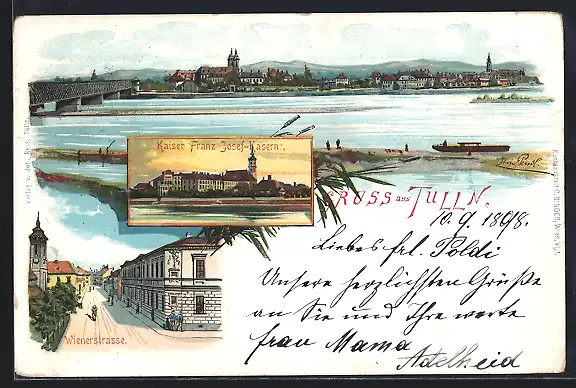 Kaiser Franz Josef-Kasern:.
GRUSS aus TULLN.
10. 9. 1898.
Liebes Frl. Poldi
Unsere herzlichsten Grüße
an Sie und Ihre werte
Frau Mama
Adelheid
Wienerstrasse.